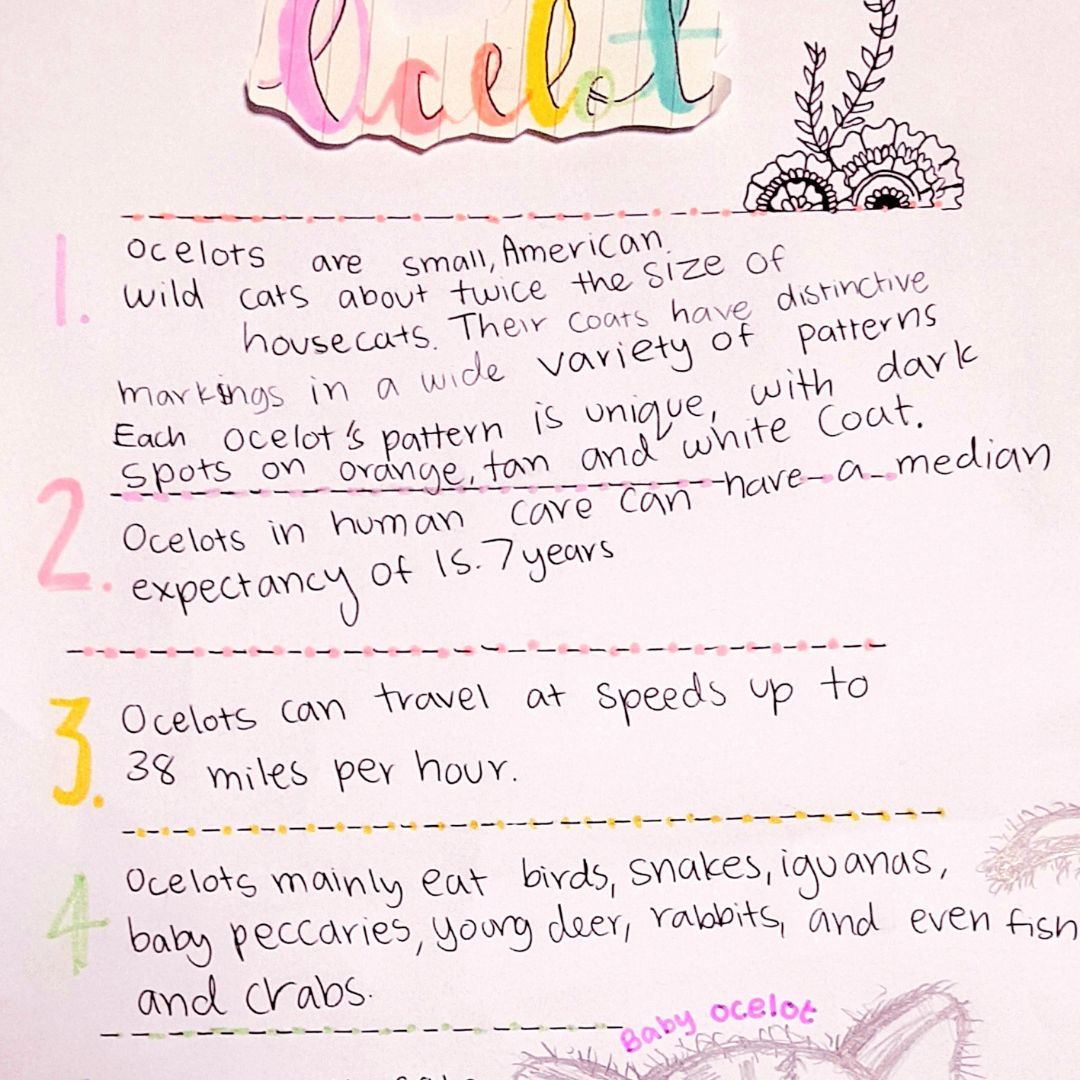 Ocelot
1.
Ocelots are small, American
wild cats about twice the size of
housecats. Their coats have distinctive
markings in a wide variety of patterns
Each ocelot's pattern is unique, with dark
spots on orange, tan and white coat.
2.
Ocelots in human care can have a median
expectancy of 15.7 years
3.
Ocelots can travel at speeds up to
38 miles per hour.
4
Ocelots mainly eat birds, snakes, iguanas,
baby peccaries, young deer, rabbits, and even fish
and crabs.
Baby ocelot